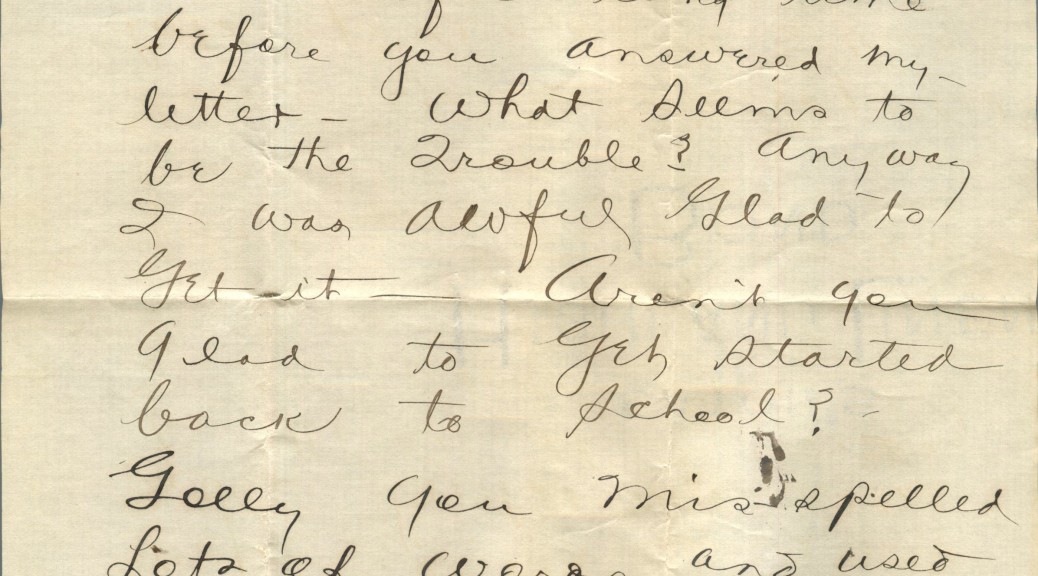 before you answered my-
letter - What seems to
be the Trouble? Anyway
I was awful Glad to
Get it — Aren't you
glad to Get started
back to school?
Golly you mis-spelled
Lots of words and used